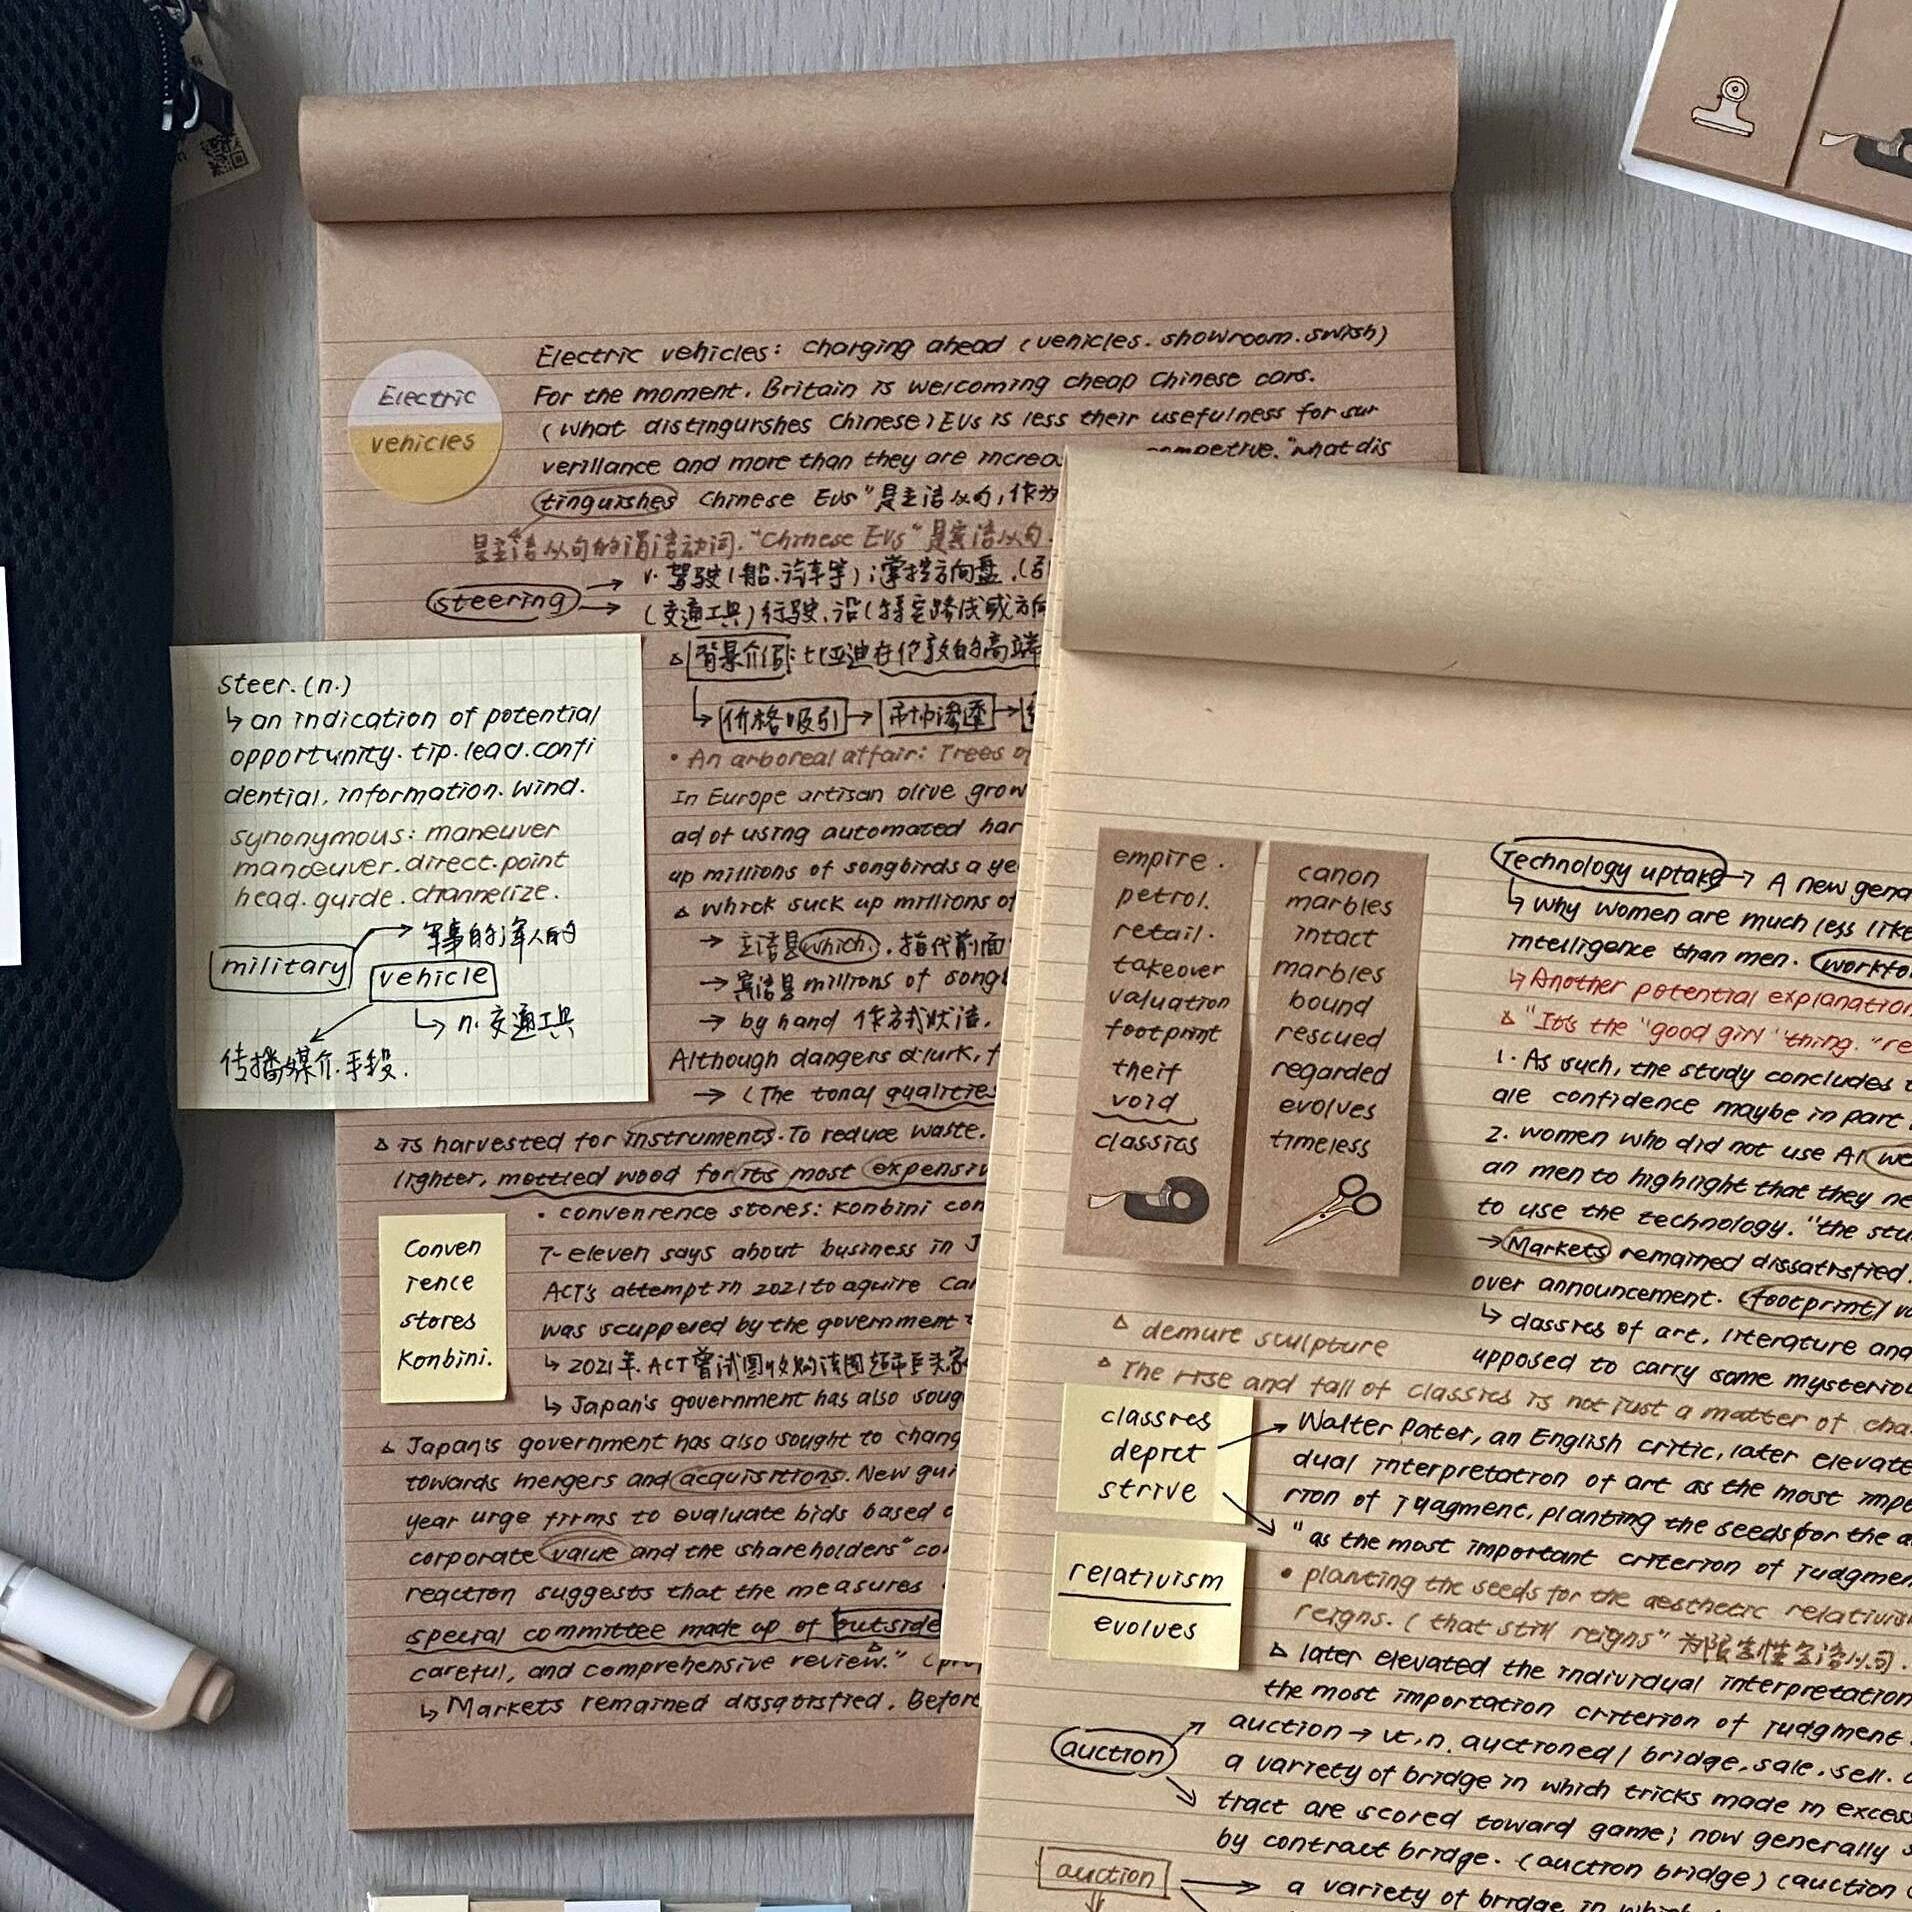 Electric
vehicles
Electric vehicles: charging ahead (vehicles. showroom. swish)
For the moment. Britain is welcoming cheap Chinese cars.
(what distingurshes Chinese) EVs is less their usefulness for sur
verillance and more than they are increa competive. "what dis
tinguishes Chinese EVs"是主语从句,作为
是主语从句的谓语动词. "Chinese EVs"是宾语从句.
steering → v. 驾驶(船.汽车等);掌控方向盘.(引
→ (交通工具)行驶.沿(特定路线或方向
△ 背景介绍: 比亚迪在伦敦的高端
↳ 价格吸引 → 市场渗透 →
• An arboreal affair: Trees of
In Europe artisan olive grow
ad of using automated har
up millions of songbirds a ye
△ which suck up millions of
→ 主语是which. 指代前面
→ 宾语是 millions of songb
→ by hand 作方式状语.
Although dangers d lurk, f
→ (The tonal qualities
△ is harvested for instruments. To reduce waste.
lighter, mottled wood for its most expensiv
• convenrence stores: Konbini con
7-eleven says about business in J
ACT's attempt in 2021 to aquire Car
was scuppered by the government
↳ 2021年. ACT曾试图收购该国超市巨头家
↳ Japan's government has also soug
△ Japan's government has also sought to chang
towards mergers and acquisitions. New gui
year urge firms to evaluate bids based o
corporate value and the shareholders" co
reaction suggests that the measures
special committee made up of outside
careful, and comprehensive review." (pr
↳ Markets remained dissatisfied. Before
steer. (n.)
↳ an indication of potential
opportunity. tip. lead. confi
dential, information. wind.
synonymous: maneuver
manoeuver. direct. point
head. guide. channelize.
military → 军事的;军人的
vehicle
↳ n. 交通工具
传播媒介.手段.
Conven
rence
stores
Konbini.
empire.
petrol.
retail.
takeover
valuation
footprint
theft
void
classics
canon
marbles
intact
marbles
bound
rescued
regarded
evolves
timeless
Technology uptake → A new gene
↳ why women are much less like
intelligence than men. workfo
↳ Another potential explanation
△ "It's the "good girl" thing. "re
1. As such, the study concludes t
ale confidence maybe in part
2. women who did not use AI we
an men to highlight that they ne
to use the technology. "the stu
→ Markets remained dissatisfied.
over announcement. footprint/ v
↳ classics of art, literature and
upposed to carry some mysteriou
△ demure sculpture
△ The rise and fall of classics is not just a matter of cha
classics
depict
strive
→ Walter Pater, an English critic, later elevate
dual interpretation of art as the most impo
rion of judgment, planting the seeds for the a
"as the most important criterion of judgmen
relativism
evolves
• planting the seeds for the aesthetic relativis
reigns. (that still reigns" 为限定性定语从句.
△ later elevated the individual interpretation
the most importation criterion of judgment.
auction
auction → vt, n. auctioned / bridge, sale. sell.
a variety of bridge in which tricks made in excess
tract are scored toward game; now generally s
by contract bridge. (auction bridge) (auction
auction
→ a variety of bridge in which